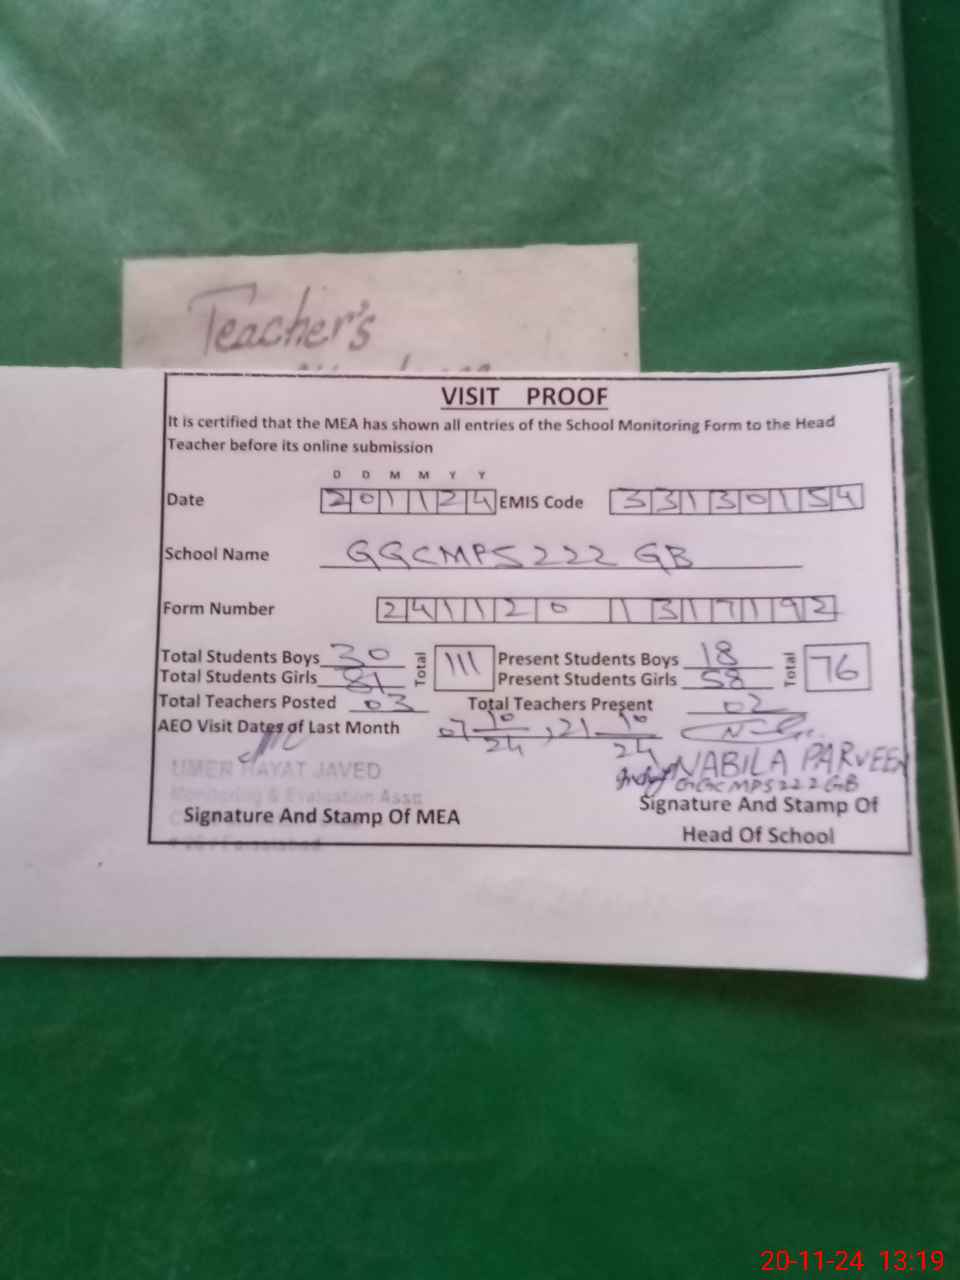 Teacher's
VISIT PROOF
It is certified that the MEA has shown all entries of the School Monitoring Form to the Head
Teacher before its online submission
D D M M Y Y
Date 201124 EMIS Code 33130154
School Name GGCMPS 222 GB
Form Number 241120 1317192
Total Students Boys 30 Total 111 Present Students Boys 18 Total 76
Total Students Girls 81 Present Students Girls 58
Total Teachers Posted 03 Total Teachers Present 02
AEO Visit Dates of Last Month 07 10/24, 21 10/24
UMER HAYAT JAVED NABILA PARVEEN
Monitoring & Evaluation Asstt GGCMPS 222 GB
Signature And Stamp Of MEA Signature And Stamp Of
Head Of School
20-11-24 13:19